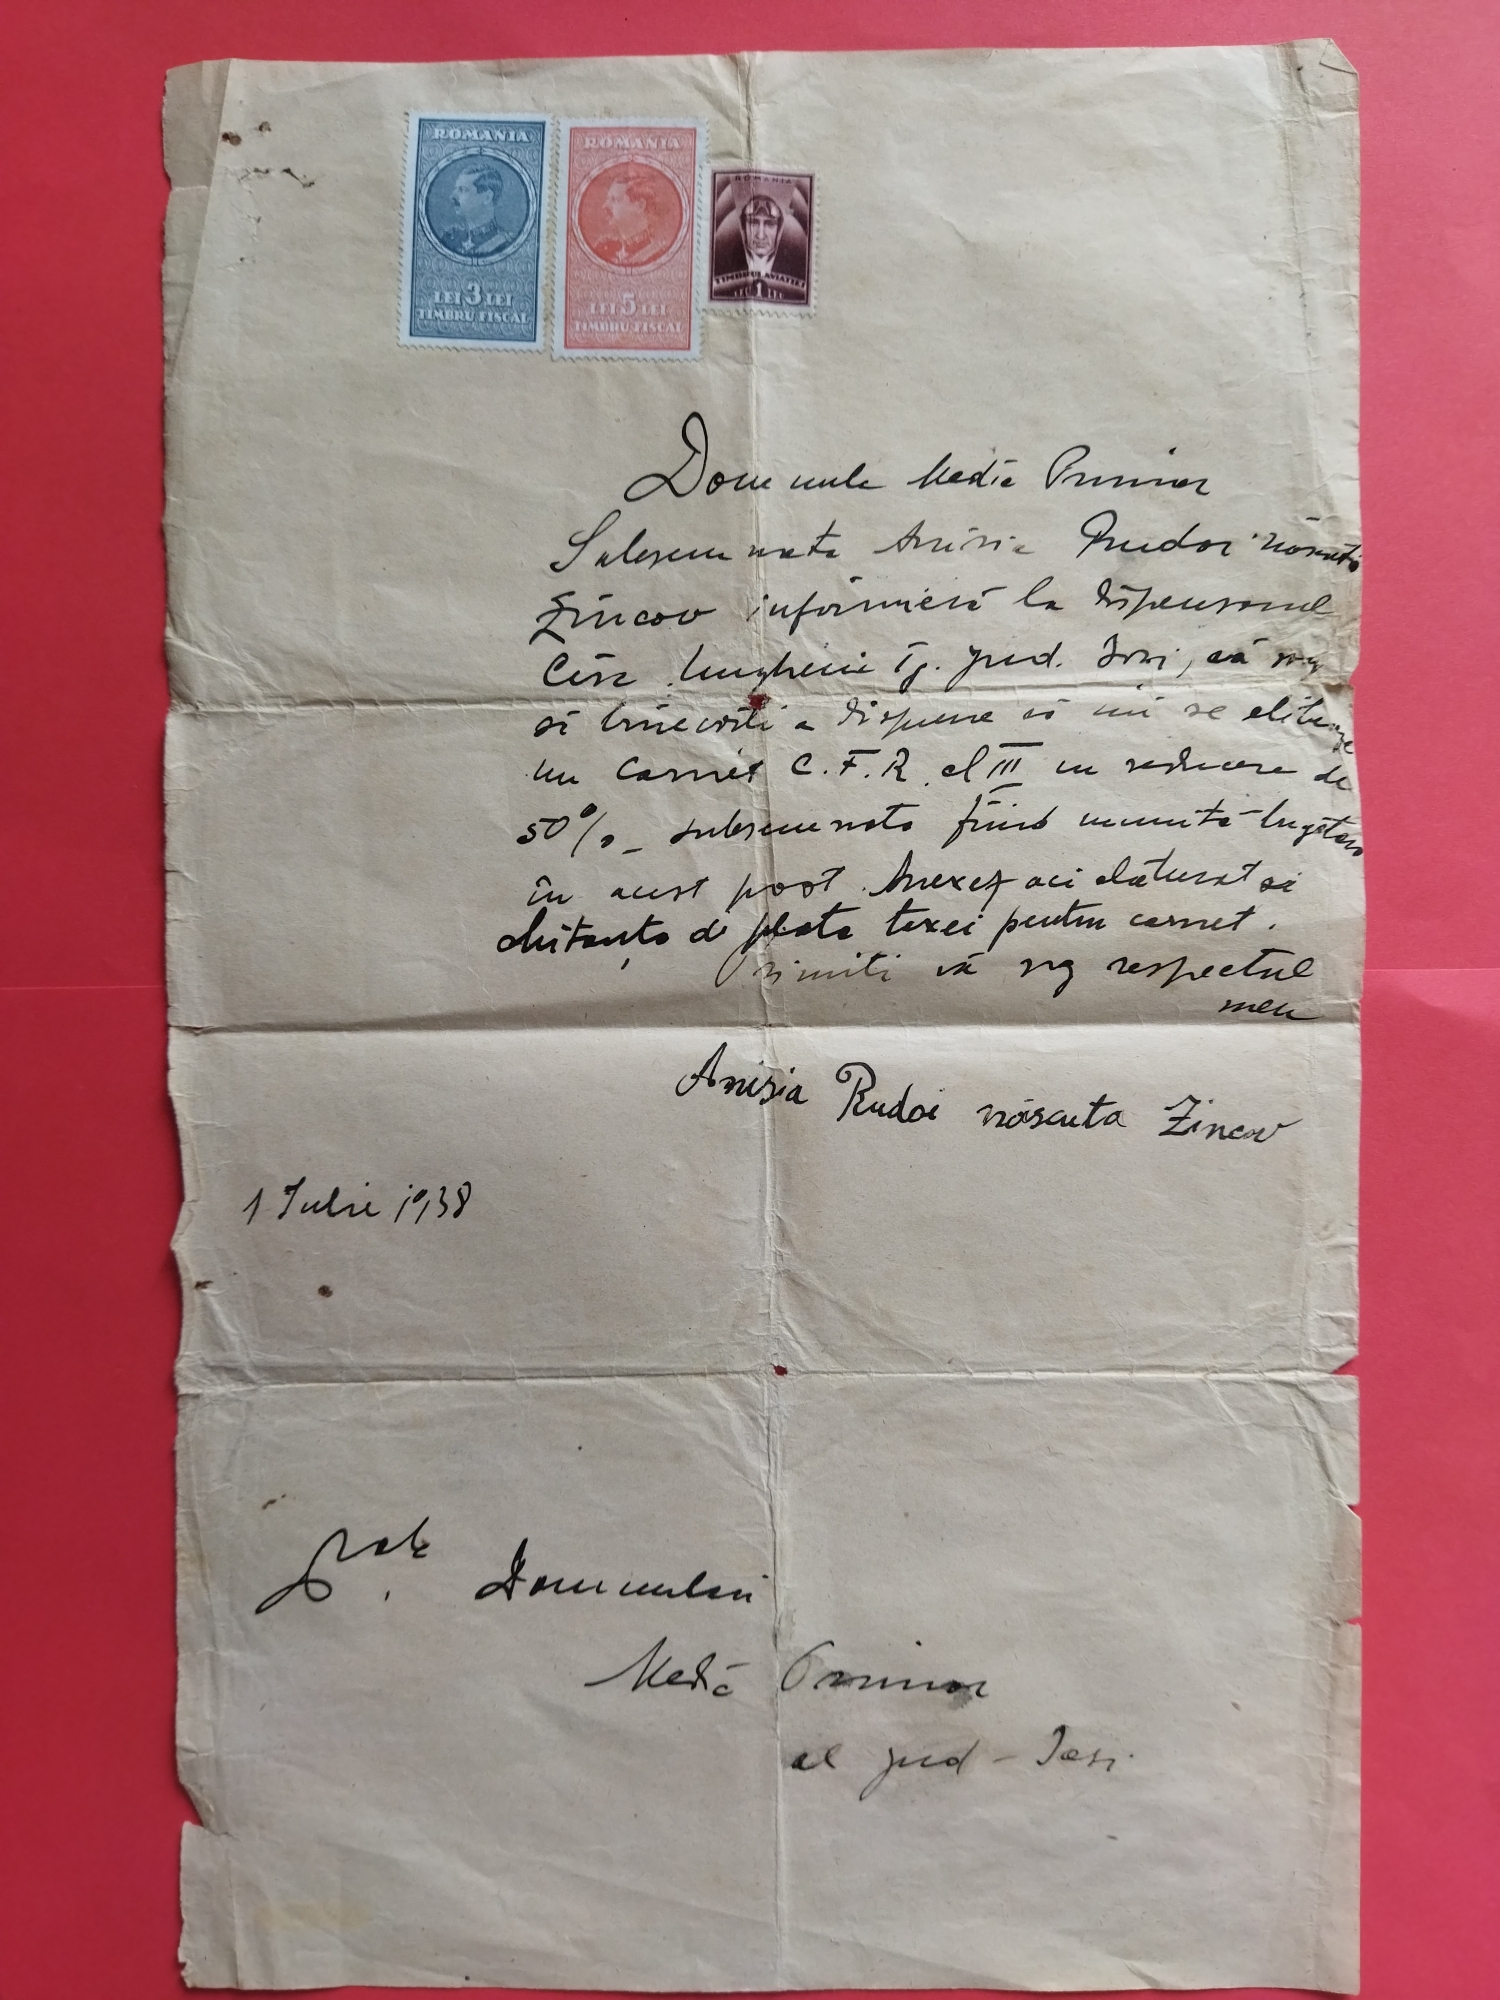 ROMANIA ROMANIA ROMANIA
LEI 3 LEI LEI 5 LEI TIMBRUL AVIATIEI
TIMBRU FISCAL TIMBRU FISCAL LEI 1 LEI
Domnule Medic Primar
Subsemnata Anisia Rudoi născută
Zincov infirmieră la dispensarul
Ungheni Tg. jud. Iași, vă rog
să binevoiți a dispune să mi se elibereze
un carnet C.F.R. cl III cu reducere de
50% subsemnata fiind numită bugetar
în acest post. Anexez aci alăturat și
chitanța de plata taxei pentru carnet.
Primiti vă rog respectul
meu
Anisia Rudoi născuta Zincov
1 Iulie 1938
Domnului
Medic Primar
al jud - Iași